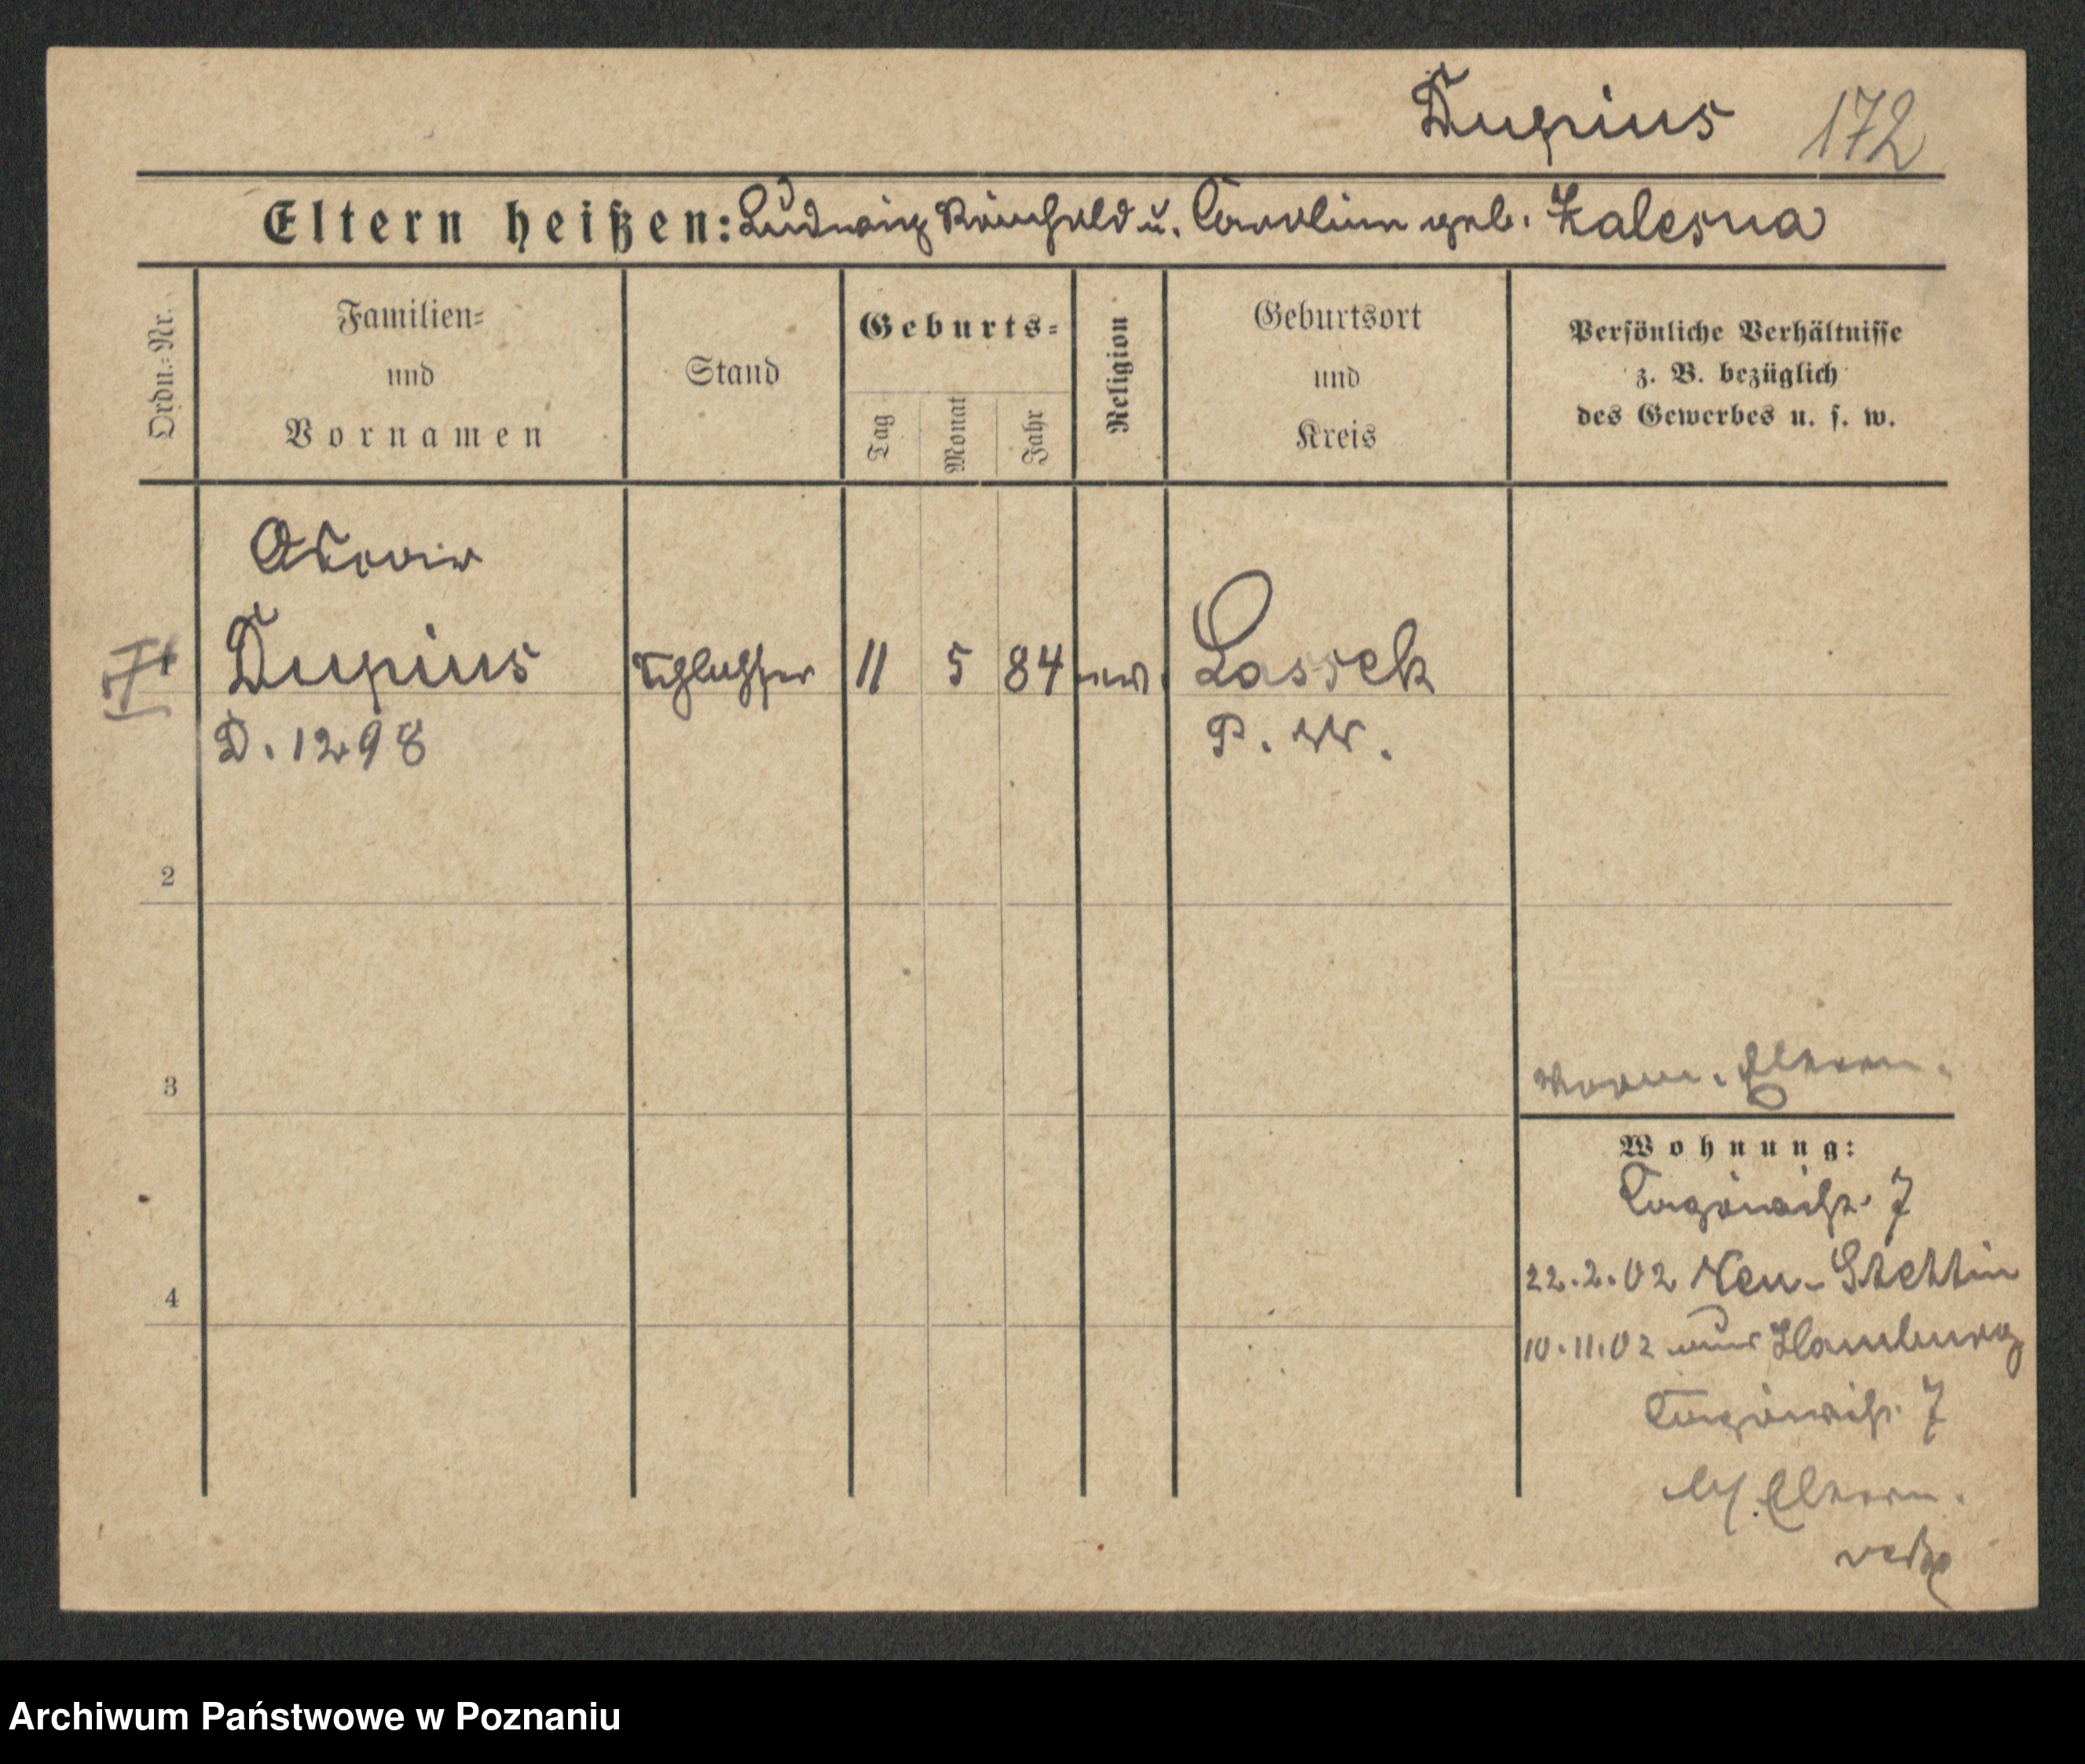 Dupius 172
Eltern heißen: Ludwig Reinhold u. Caroline geb. Zalesna
Ordn.-Nr.
Familien- und Vornamen
Stand
Geburts-
Tag
Monat
Jahr
Religion
Geburtsort und Kreis
Persönliche Verhältnisse
z. B. bezüglich
des Gewerbes u. s. w.
Dupius Schlosser 11 5 84 Lassek
D. 1298 P. W.
2
3
4
Wohnung:
7
22.2.02 Neu-Stettin
10.11.02 aus Hamburg
7
Archiwum Państwowe w Poznaniu